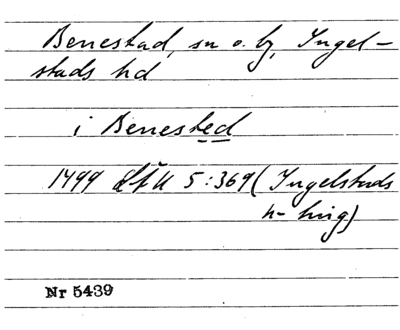 Benestad, sn o. by, Ingel-
stads hd
i Benested
1499 LfU 5:369 (Ingelstads
h- ting)
Nr 5439